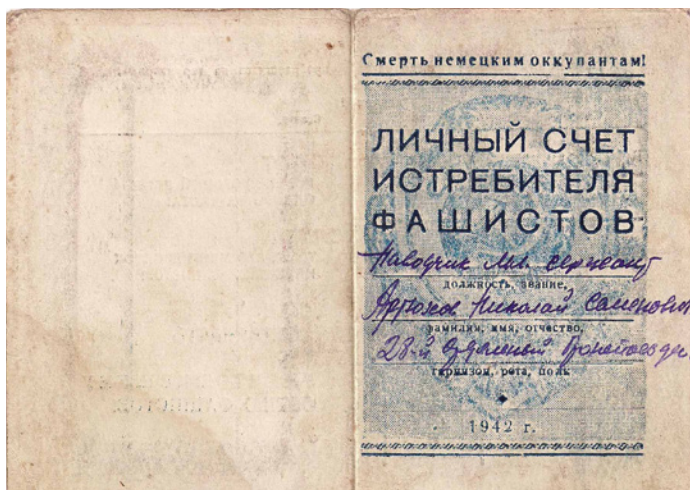 Смерть немецким оккупантам!
ЛИЧНЫЙ СЧЕТ
ИСТРЕБИТЕЛЯ
ФАШИСТОВ
Наводчик мл. сержант
должность, звание,
Николай Семенович
фамилия, имя, отчество,
28-й
гарнизон, рота, полк
1942 г.